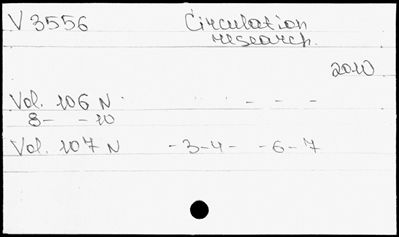 V 3556 Circulation
research.
2010
Vol. 106 N - - -
8- -10
Vol. 107 N -3-4- -6-7